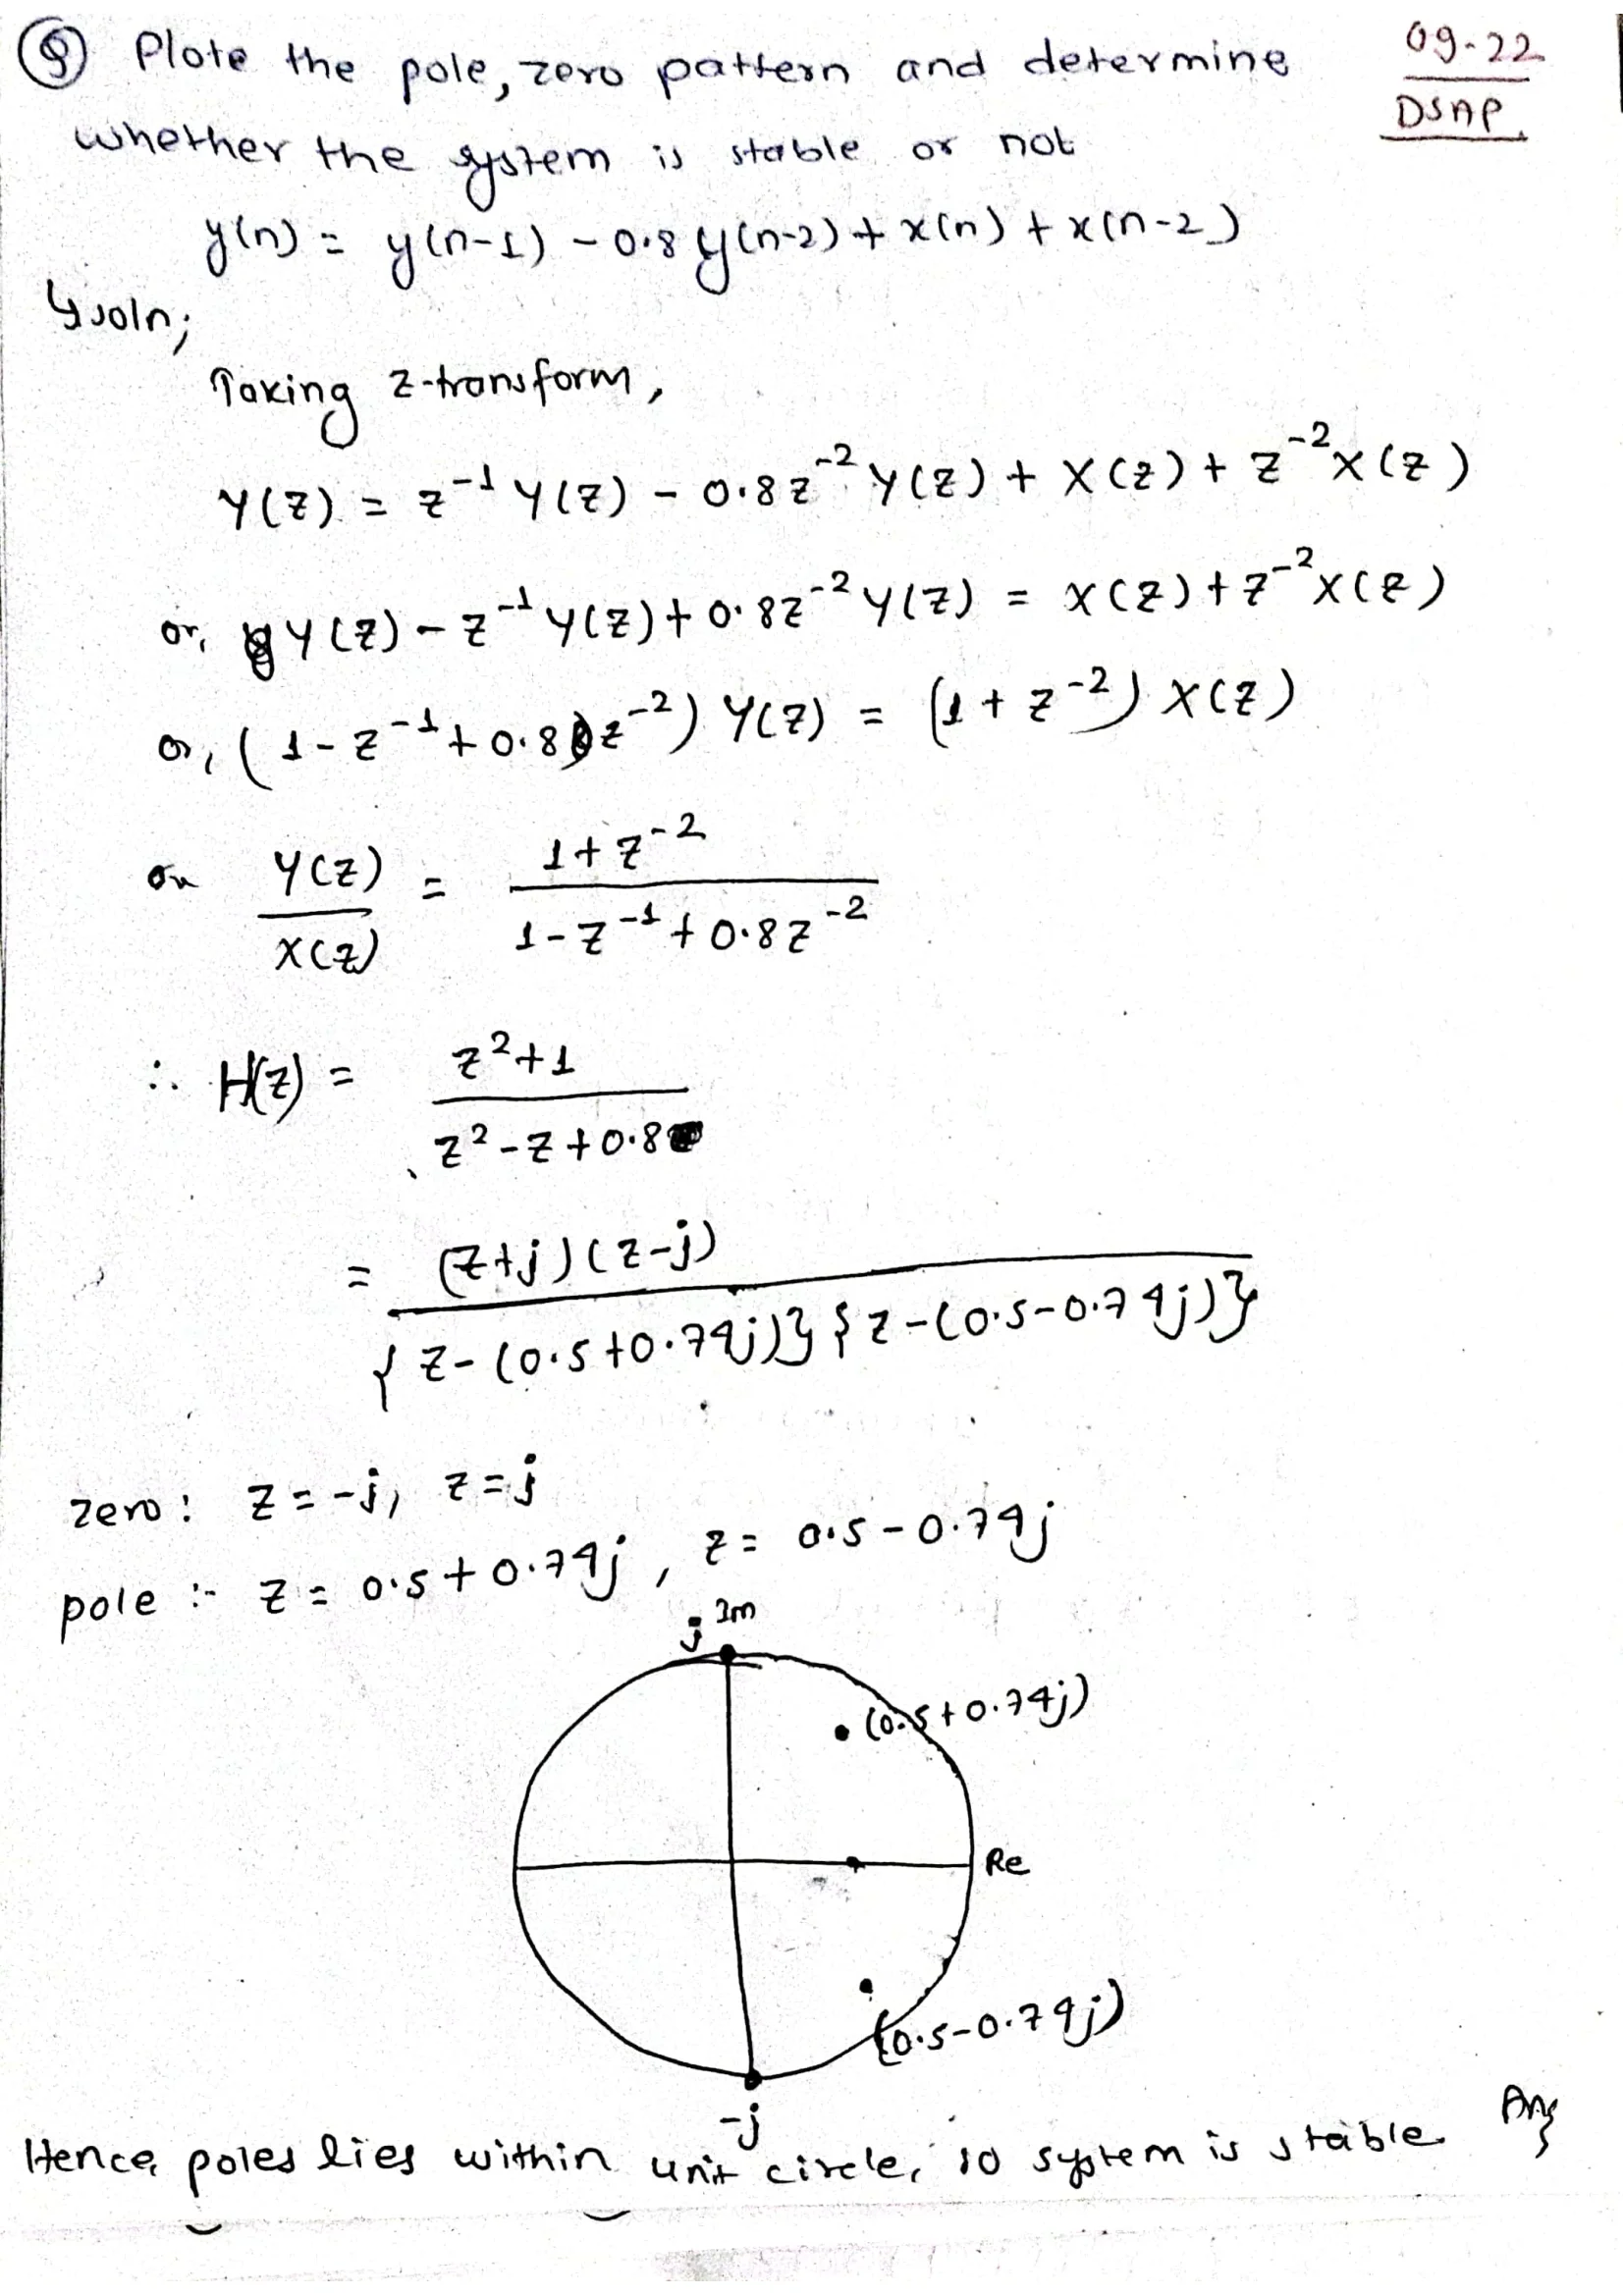 Q Plote the pole, zero pattern and determine
09-22
DSAP
whether the system is stable or not
y(n) = y(n-1) - 0.8 y(n-2) + x(n) + x(n-2)
↳ soln;
Taking z-transform,
Y(z) = z^-1 Y(z) - 0.8 z^-2 Y(z) + X(z) + z^-2 X(z)
or, Y(z) - z^-1 Y(z) + 0.8z^-2 Y(z) = X(z) + z^-2 X(z)
or, (1 - z^-1 + 0.8 z^-2) Y(z) = (1 + z^-2) X(z)
or Y(z)/X(z) = (1 + z^-2)/(1 - z^-1 + 0.8z^-2)
∴ H(z) = (z^2 + 1)/(z^2 - z + 0.8)
= (z+j)(z-j)/{z-(0.5+0.74j)}{z-(0.5-0.74j)}
zero: z = -j, z = j
pole :- z = 0.5 + 0.74j, z = 0.5 - 0.74j
j Im
(0.5+0.74j)
Re
(0.5-0.74j)
-j
Hence poles lies within unit circle, so system is stable Ans